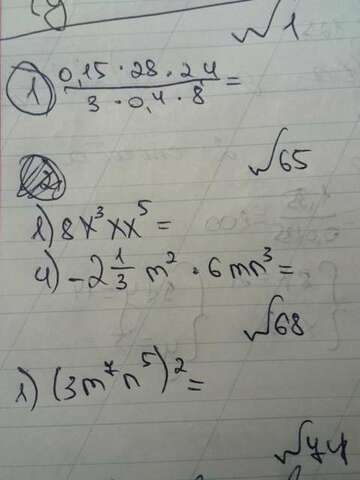 №1
1) 0,15 · 28 · 24 / 3 · 0,4 · 8 =
№65
2) 8x³xx⁵ =
4) -2 1/3 m² · 6mn³ =
№68
1) (3m⁷n⁵)² =